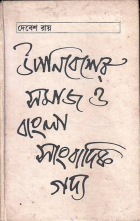 দেবেশ রায়
উপনিবেশের
সমাজ ও
বাংলা
সাংবাদিক
গদ্য